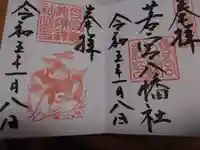 奉拝
若宮八幡社
令和五年一月八日
奉拝
令和五年一月八日